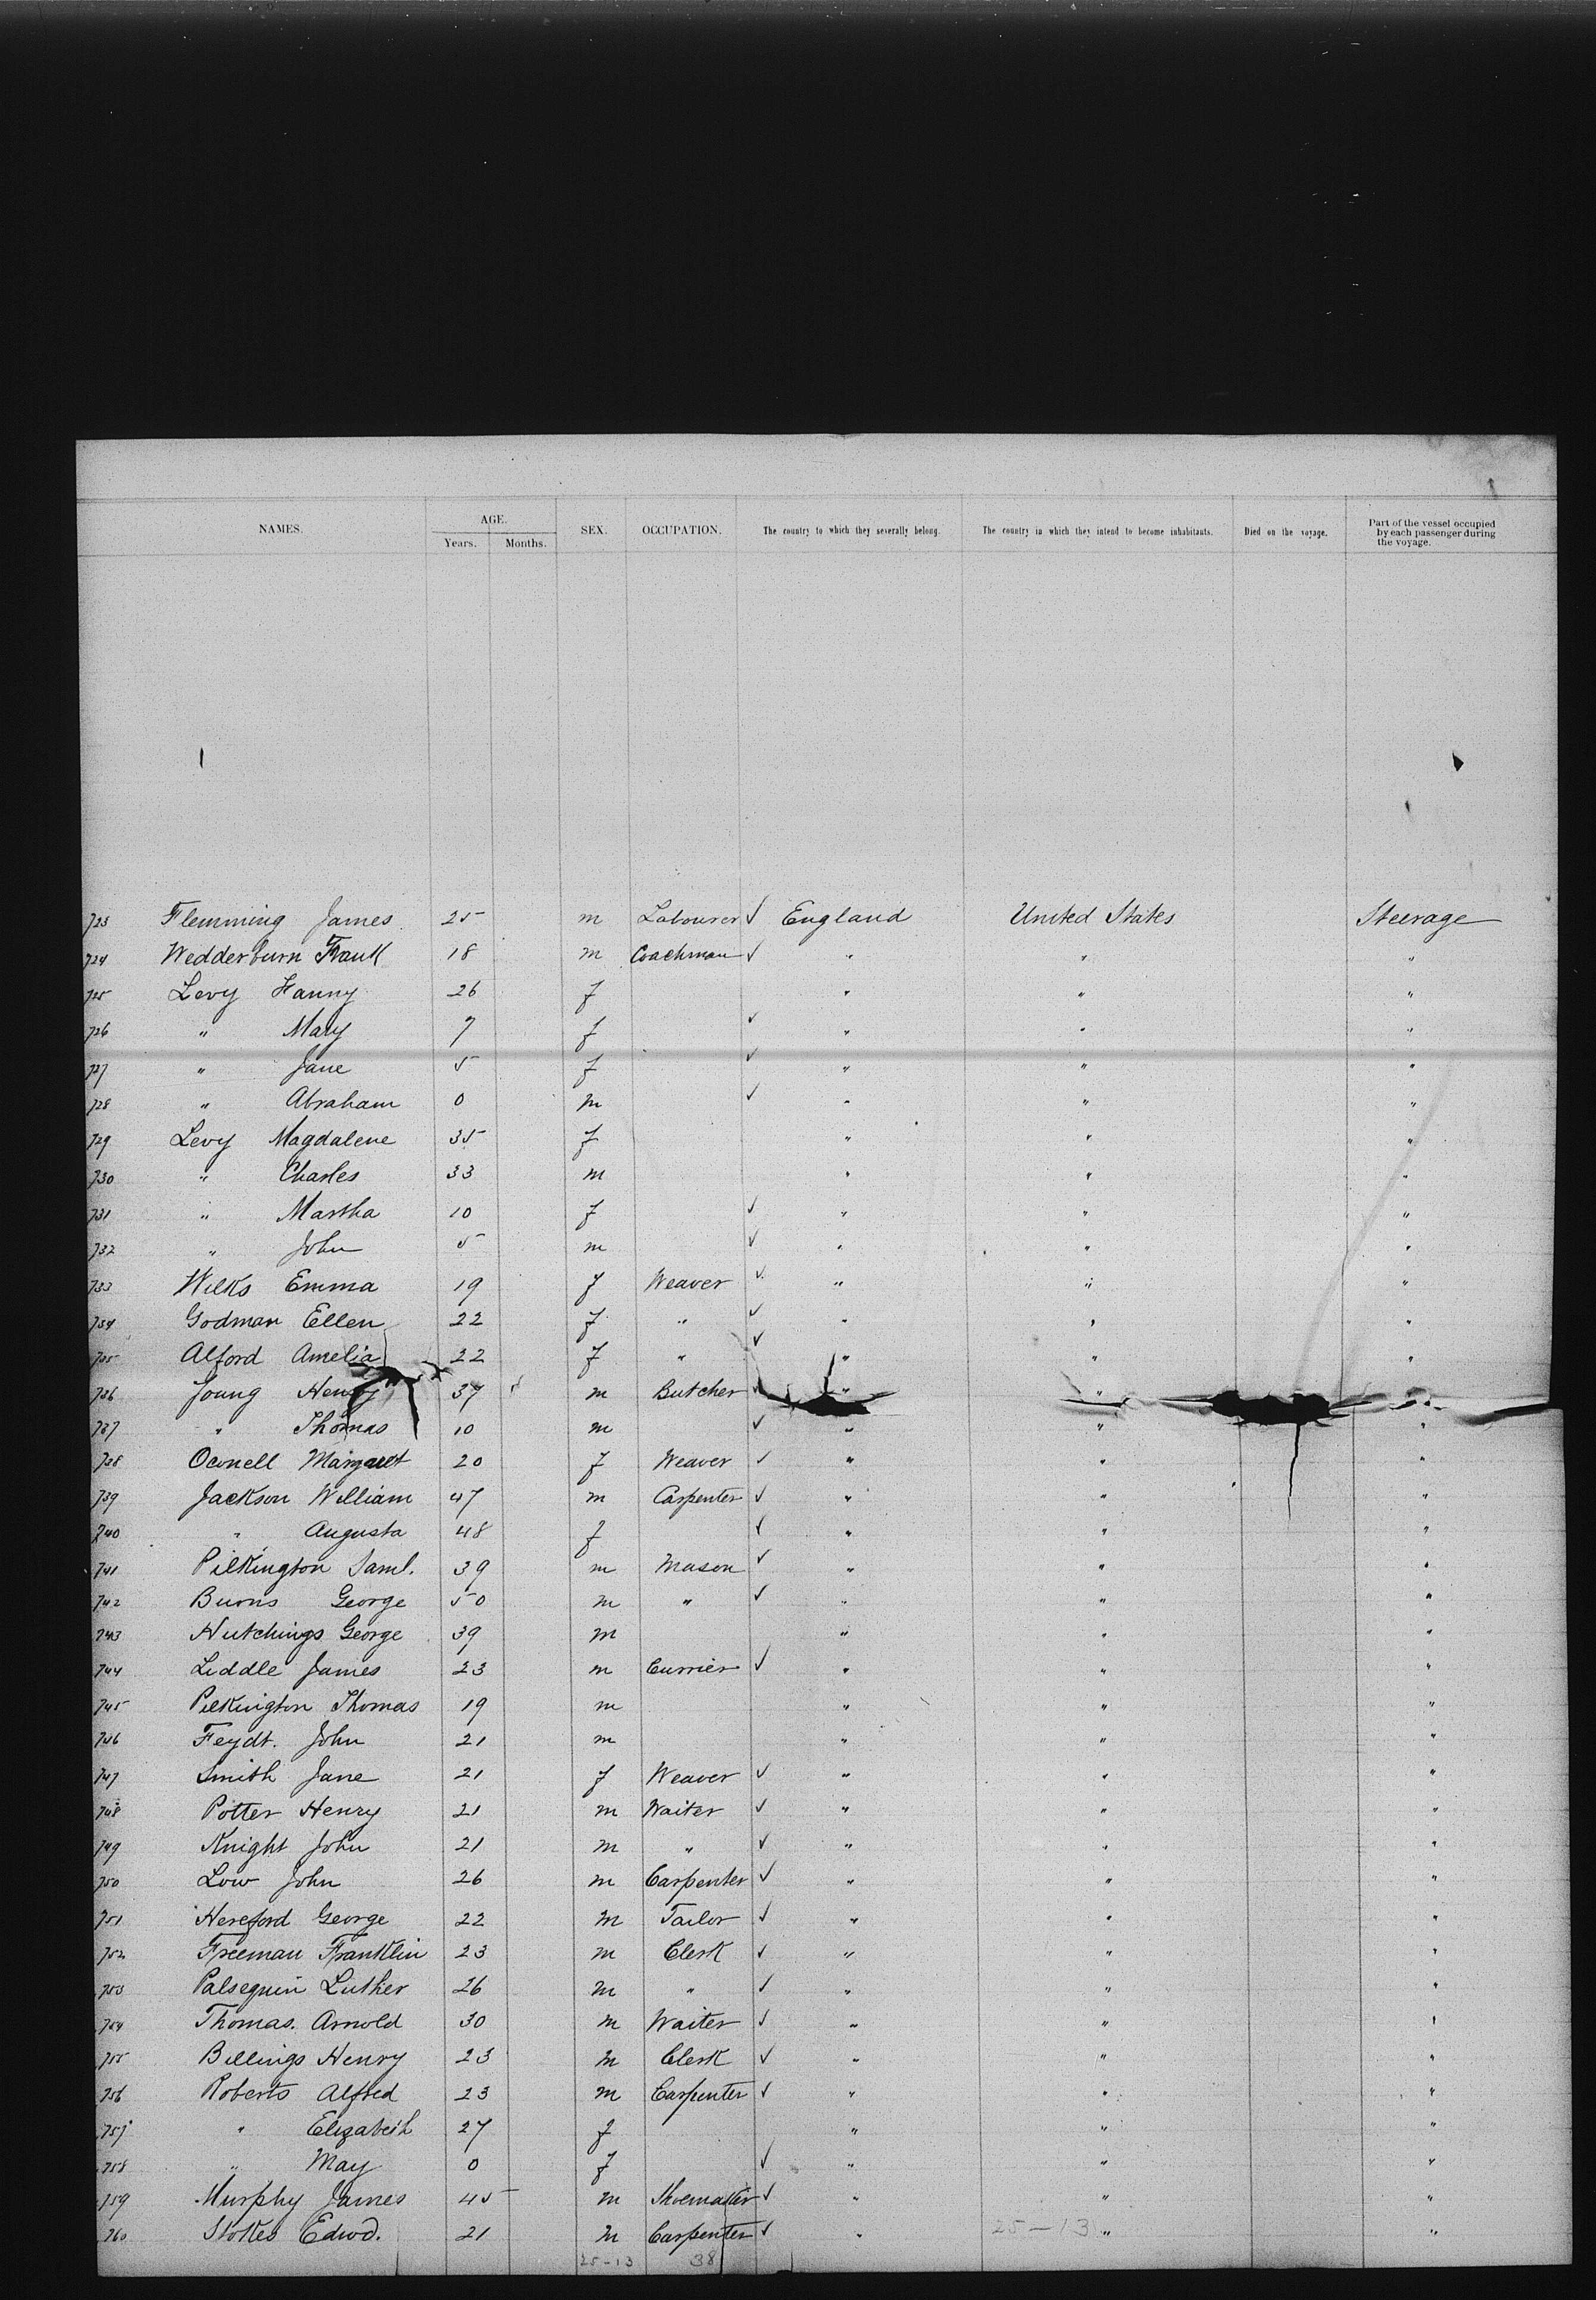 NAMES. AGE. SEX. OCCUPATION. The country to which they severally belong. The country in which they intend to become inhabitants. Died on the voyage. Part of the vessel occupied by each passenger during the voyage.
Years. Months.
723 Flemming James 25 m Labourer ✓ England United States Steerage
724 Wedderburn Frank 18 m Coachman ✓ " " "
725 Levy Fanny 26 f " " "
726 " Mary 7 f ✓ " " "
727 " Jane 5 f ✓ " " "
728 " Abraham 0 m ✓ " " "
729 Levy Magdalene 35 f " " "
730 " Charles 33 m " " "
731 " Martha 10 f ✓ " " "
732 " John 5 m ✓ " " "
733 Wilks Emma 19 f Weaver ✓ " " "
734 Godman Ellen 22 f " ✓ " " "
735 Alford Amelia 22 f " ✓ " " "
736 Young Henry 37 m Butcher ✓ " "
737 " Thomas 10 m ✓ " " "
738 Oconell Margaret 20 f Weaver ✓ " " "
739 Jackson William 47 m Carpenter ✓ " " "
740 " Augusta 48 f ✓ " " "
741 Pilkington Saml. 39 m Mason ✓ " " "
742 Burns George 50 m " ✓ " " "
743 Hutchings George 39 m " " "
744 Liddle James 23 m Currier ✓ " " "
745 Pilkington Thomas 19 m " " "
746 Feydt. John 21 m " " "
747 Smith Jane 21 f Weaver ✓ " " "
748 Potter Henry 21 m Waiter ✓ " " "
749 Knight John 21 m " ✓ " " "
750 Low John 26 m Carpenter ✓ " " "
751 Hereford George 22 m Tailor ✓ " " "
752 Freeman Franklin 23 m Clerk ✓ " " "
753 Palseguin Luther 26 m " ✓ " " "
754 Thomas. Arnold 30 m Waiter ✓ " " "
755 Billings Henry 23 m Clerk ✓ " " "
756 Roberts Alfred 23 m Carpenter ✓ " " "
757 " Elizabeth 27 f " " "
758 " May 0 f ✓ " " "
759 Murphy James 45 m Shoemaker ✓ " " "
760 Stokes Edwd. 21 m Carpenter ✓ " 25-13 " "
25-13 38